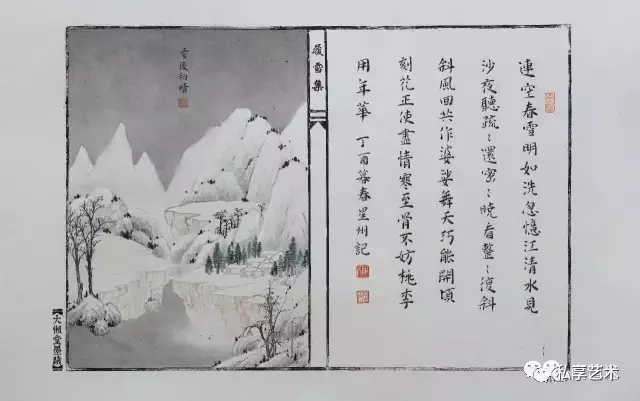 連空春雪明如洗忽憶江清水見
沙夜聽疏〻還密〻晚看整〻復斜
斜風回共作婆娑舞天巧能開頃
刻花正使盡情寒至骨不妨桃李
用年華 丁酉暮春星州記
履雪集
雪後初晴
大懶堂墨蹟
私享艺术